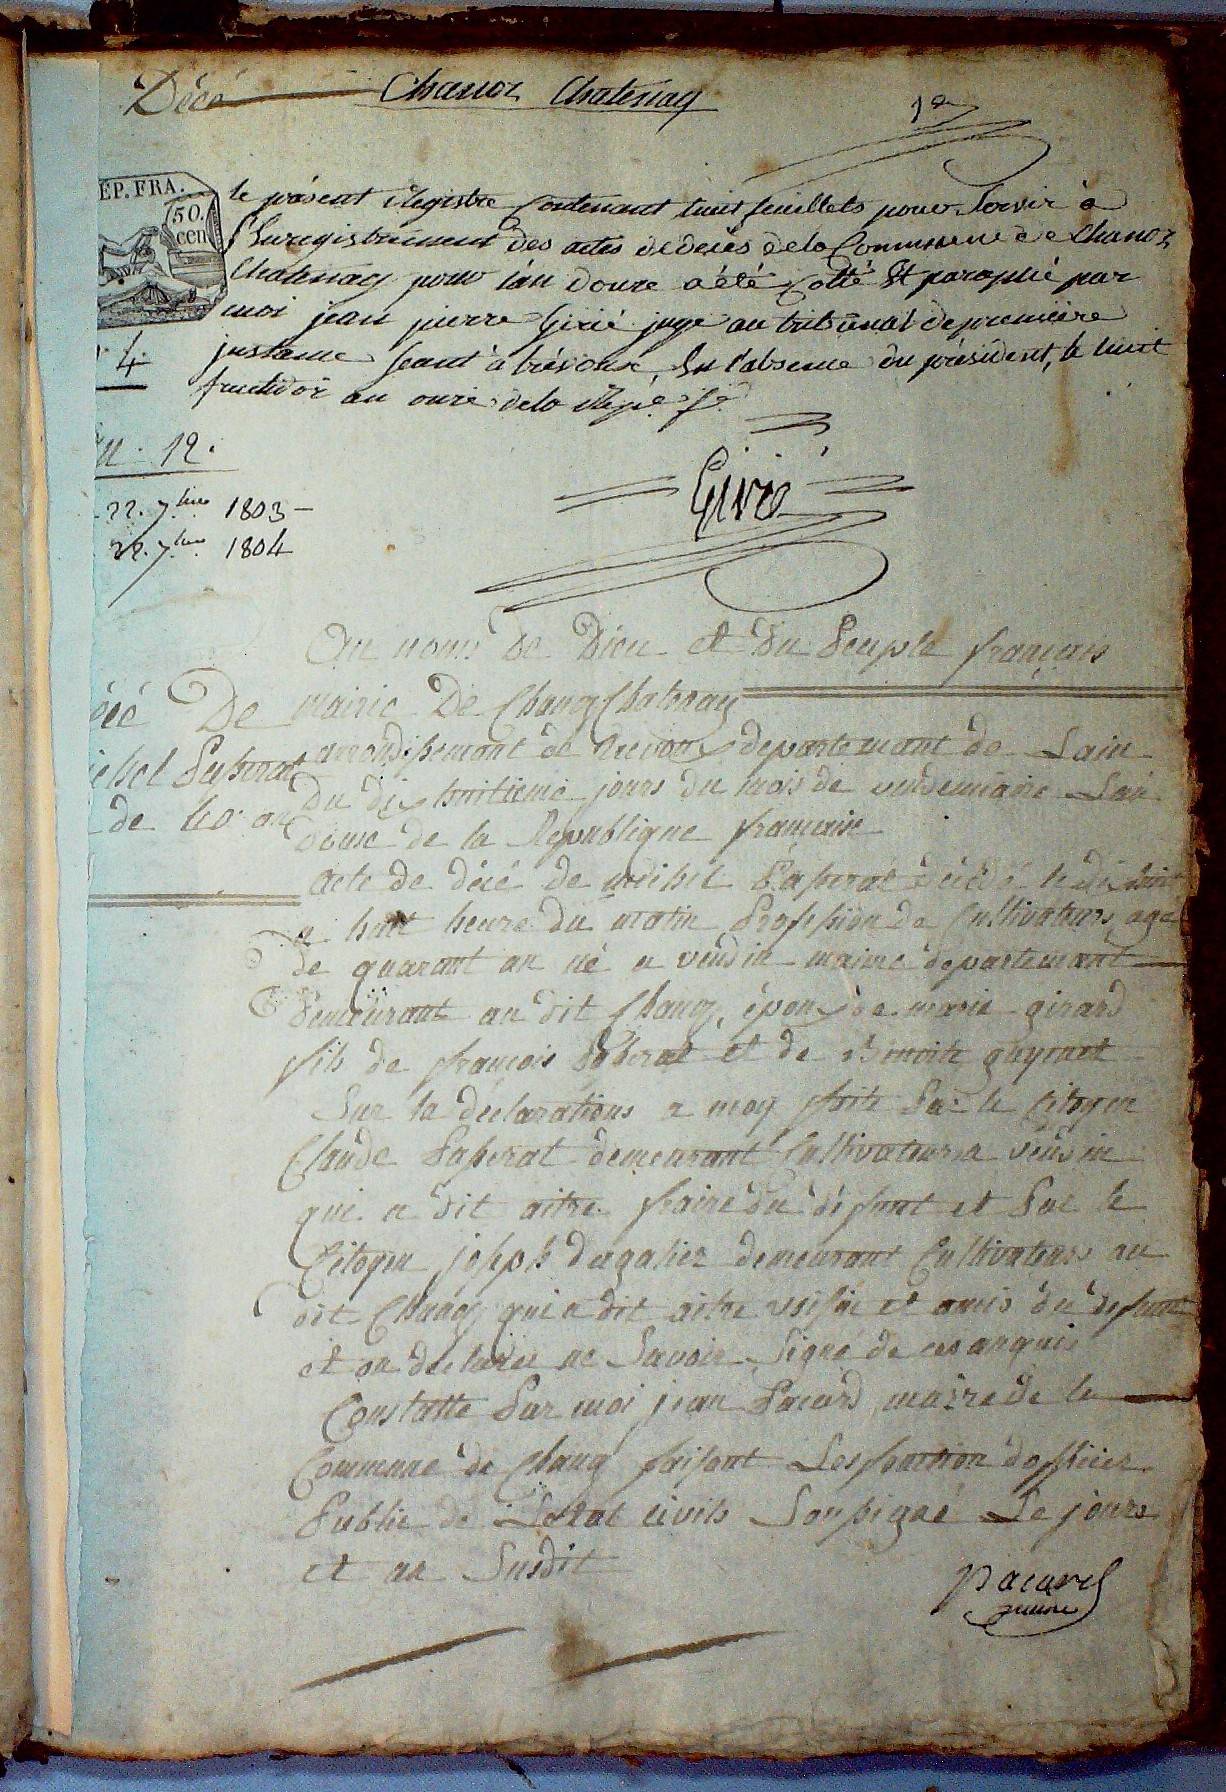 Décé Chanoz Chatenay
1er
EP. FRA.
50.
cen
le présent Registre Contenant huit feuillets pour Servir à
l'Enregistrement des actes de décès de la Commune de Chanoz
Chatenay pour l'an douze a été Cotté Et paraphé par
moi jean pierre Girié juge au tribunal de premiere
instance Seant à trévoux, En l'absence du président, le huit
fructidor an onze de la Rép. fse
4.
an. 12.
22. 7bre 1803
22. 7bre 1804
Girié
Au nom de Dieu et du Peuple français
Mairie De Chanoz Chatenay
arrondissemant de Trevoux departemant de Lain
Du dix huitieme jours du mois de vendemiaire Lan
douse de la Republique française
décé De
michel Paperat
de 40 an
acte de décé de michel Paperat décédé le dix huit
a huit heure du matin Profession de Cultivateurs agé
de quarant an né a vendin maime departemant
demeurant au dit Chanoz, époux de marie girard
fils de françois Paperat et de Benoite guyrant
Sur la déclarations a moy faite Par le Citoyen
Claude Paperat demeurant Cultivateurs a vendin
qui a dit aitre fraire du défunt et Par le
Citoyen joseph dagalier demeurant Cultivateurs au
dit Chanoz qui a dit aitre voisin et amis du defunt
et on declarer ne Savoir Signé de ces anquis
Constatté Par moi jean Pacard maire de la
Commune de Chanoz faisant Les fonction dofficier
Public de Letat civils Soussigné Le jours
et an Susdit
Pacard
maire